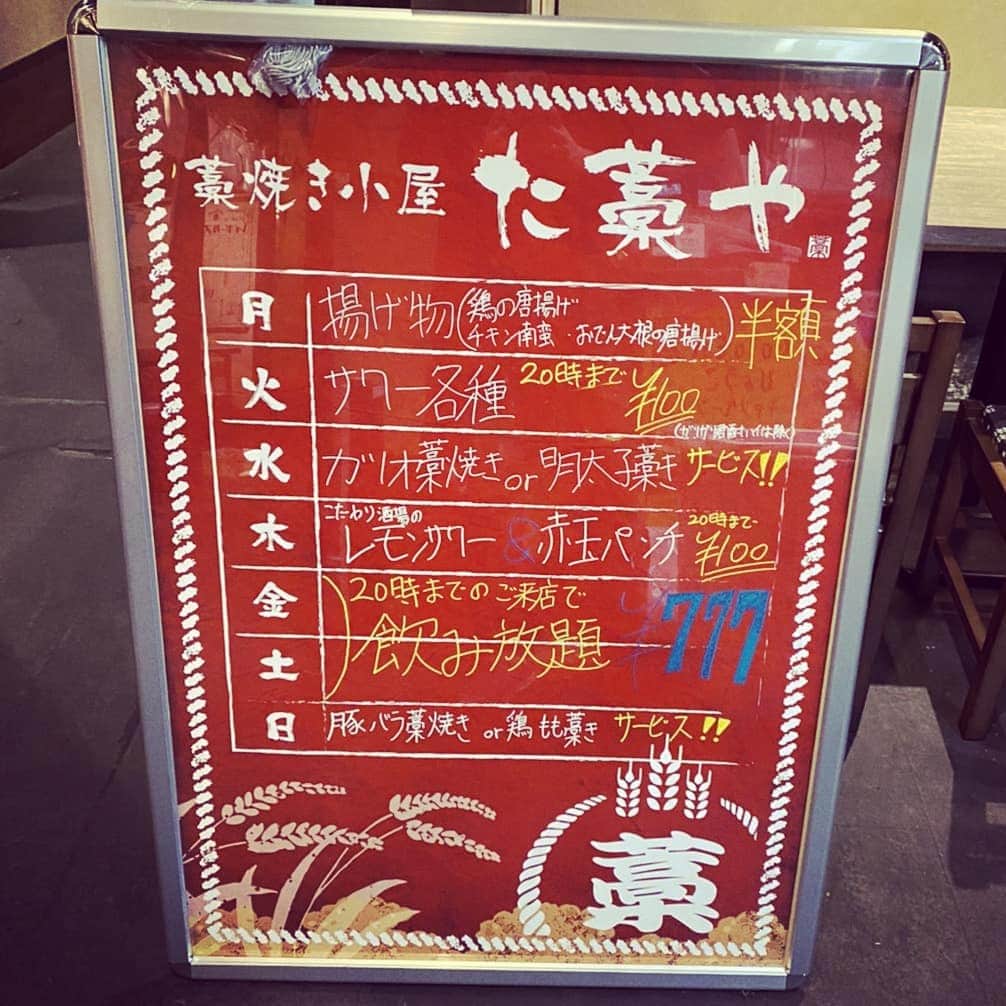 藁焼き小屋 た藁や
藁
月 揚げ物(鶏の唐揚げ
チキン南蛮・おでん大根の唐揚げ) 半額
火 サワー各種 20時まで ¥100
水 ガツオ藁焼き or 明太子藁き サービス!!
木 こだわり酒場の
レモンサワー & 赤玉パンチ 20時まで ¥100
金 20時までのご来店で
土 飲み放題 ¥777
日 豚バラ藁焼き or 鶏もも藁き サービス!!
藁